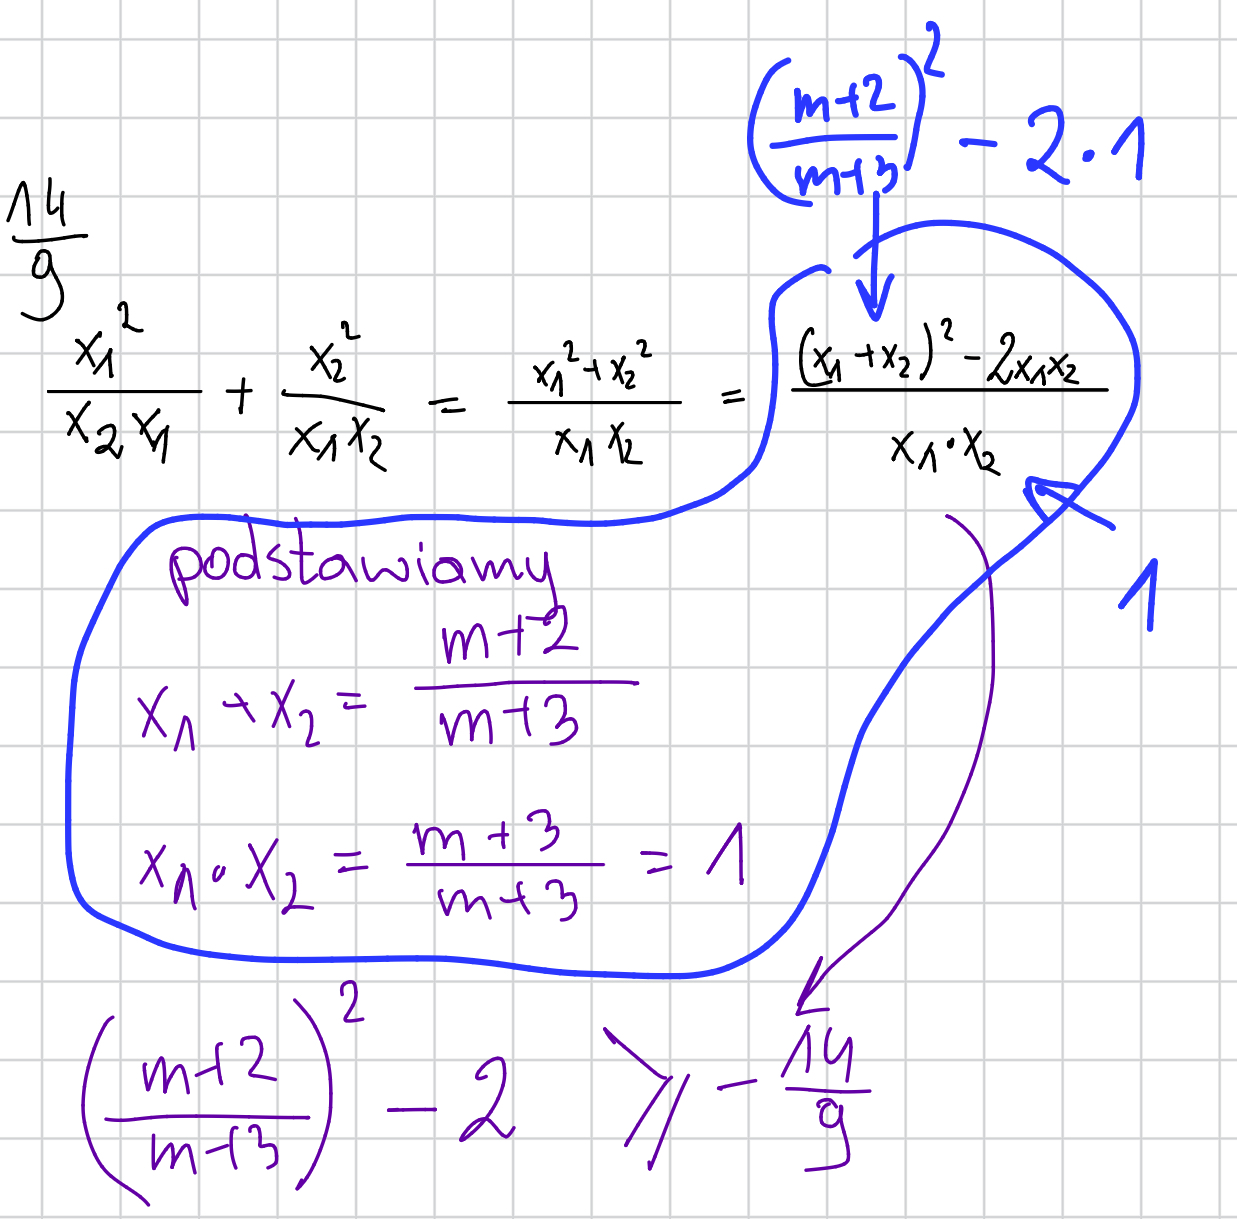 ((m+2)/(m+3))² - 2·1
14/9
x₁²/(x₂x₁) + x₂²/(x₁x₂) = (x₁²+x₂²)/(x₁x₂) = ((x₁+x₂)² - 2x₁x₂)/(x₁·x₂)
1
podstawiamy
x₁+x₂ = (m+2)/(m+3)
x₁·x₂ = (m+3)/(m+3) = 1
((m+2)/(m+3))² - 2 ⩾ - 14/9